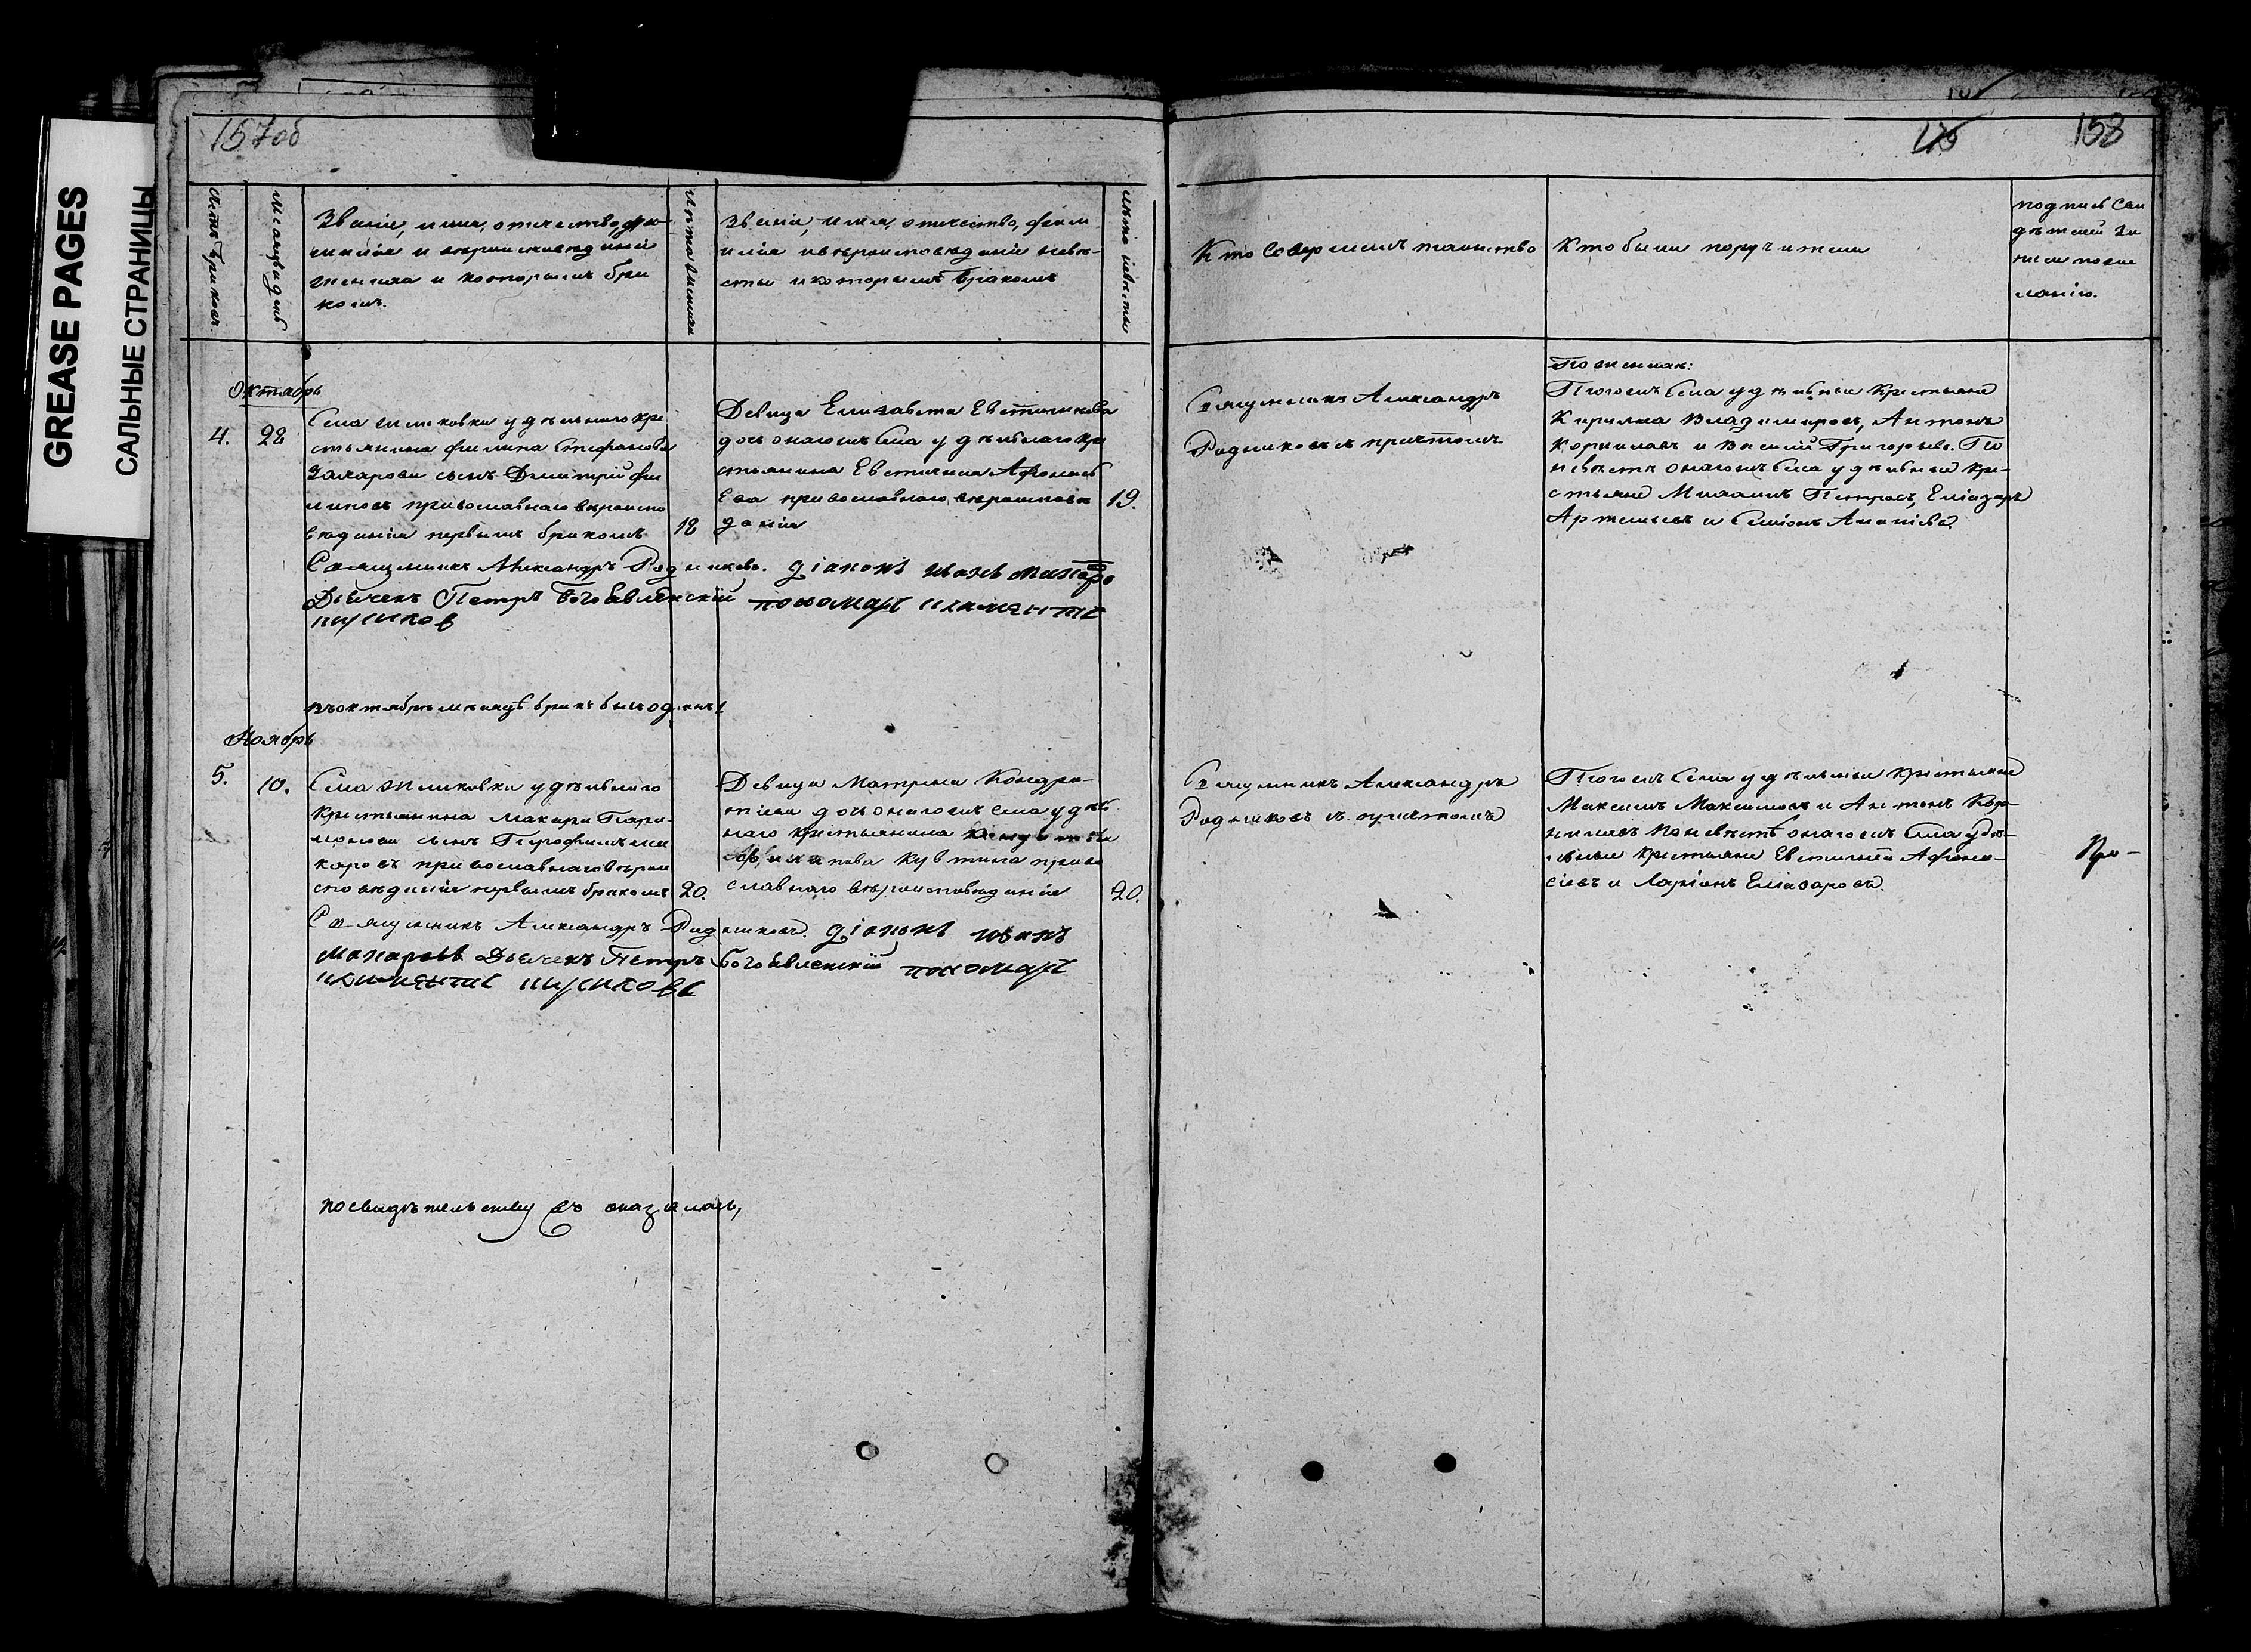 GREASE PAGES
САЛЬНЫЕ СТРАНИЦЫ
157об
175
158
Счетъ браковъ.
Месяцъ и день
Званіе, имя, отчество, фа-
милія и вероисповеданіе
жениха и которымъ бра
комъ.
Лета жениха
Званіе, имя, отчество, фам
илія и вероисповеданіе неве-
сты и которымъ бракомъ
Лета невесты
Кто совершилъ таинство
Кто были поручители
подпись сви
детелей за
писи по же
ланію.
Октябрь
4.
22
удельнаго кре
стьянина Филипа Стефанова
Захарова сынъ Дмитрій Фи
липовъ православнаго вероиспо
веданія первымъ бракомъ
18
Девица Елизавета Евстигнеева
дочь онагожъ села удельнаго кре
стьянина Евстигнея Афонась
ева православнаго вероиспове
данія
19.
Священникъ Александръ
Родниковъ съ причтомъ
По женихе:
Тогожъ села удельные крестьяне
Кирилла Владимировъ, Антонъ
Корниловъ и Василій Григорьевъ. По
невесте онагожъ села удельные кре-
стьяне Михаилъ Петровъ, Елиазаръ
Артемьевъ и Семіонъ Ананіевъ.
Священникъ Александръ Родниковъ. діаконъ иванъ макаро
Дьячекъ Петръ Богоявленскій пономарь климентъ
въ октябре месяце бракъ былъ одинъ 1
Ноябрь
5.
10.
Села удельнаго
крестьянина Макара Пара-
монова сынъ Ма
каровъ православнаго вероис
поведанія первымъ бракомъ
20.
Девица Матрена Кондра-
тьева дочь онагожъ села удель
наго крестьянина Кондратья
право
славнаго вероисповеданія
20.
Священникъ Александръ
Родниковъ съ причтомъ
Тогожъ села удельные крестьяне
Максимъ Максимовъ и Антонъ Кор-
ниловъ по невесте онагожъ села уде-
льные крестьяне Евстигней Афона-
сіевъ и Ларіонъ Елиазаровъ.
Священникъ Александръ Родниковъ. діаконъ иванъ
макаровъ Дьячекъ Петръ Богоявленскій пономарь
климентъ
по свидетельству оказалось,